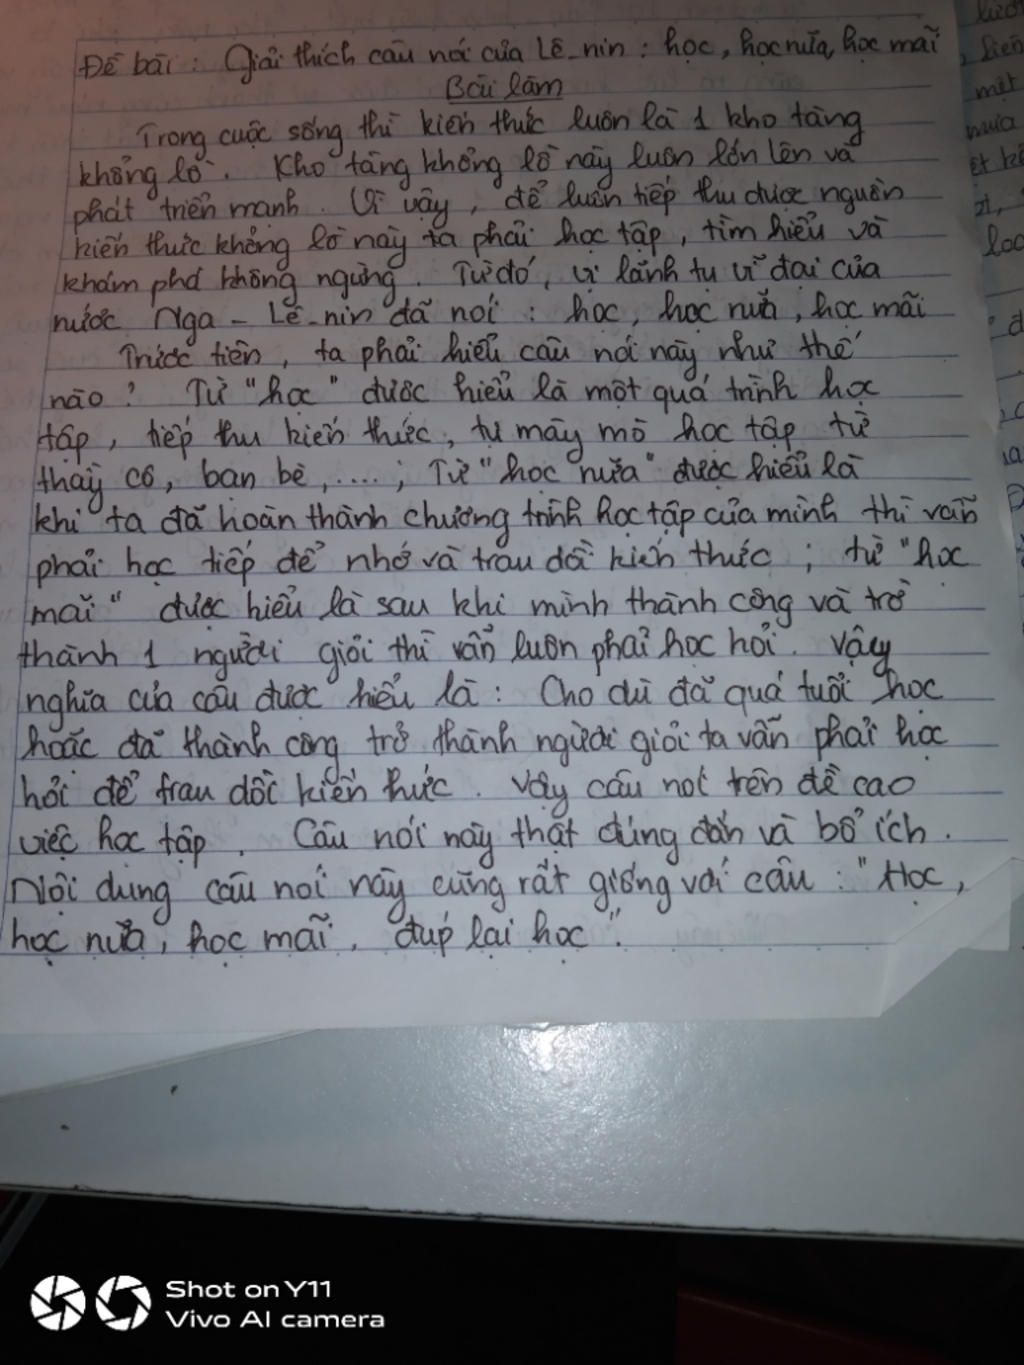 Đề bài : Giải thích câu nói của Lê-nin : học, học nữa, học mãi
Bài làm
Trong cuộc sống thì kiến thức luôn là 1 kho tàng
khổng lồ. Kho tàng khổng lồ này luôn lớn lên và
phát triển mạnh. Vì vậy, để luôn tiếp thu được nguồn
kiến thức khổng lồ này ta phải học tập, tìm hiểu và
khám phá không ngừng. Từ đó, vị lãnh tụ vĩ đại của
nước Nga - Lê-nin đã nói : học, học nữa, học mãi
Trước tiên, ta phải hiểu câu nói này như thế
nào? Từ "học" được hiểu là một quá trình học
tập, tiếp thu kiến thức, tự mày mò học tập từ
thầy cô, bạn bè,....; Từ "học nữa" được hiểu là
khi ta đã hoàn thành chương trình học tập của mình thì vẫn
phải học tiếp để nhớ và trau dồi kiến thức ; từ "học
mãi" được hiểu là sau khi mình thành công và trở
thành 1 người giỏi thì vẫn luôn phải học hỏi. Vậy
nghĩa của câu được hiểu là : Cho dù đã quá tuổi học
hoặc đã thành công trở thành người giỏi ta vẫn phải học
hỏi để trau dồi kiến thức. Vậy câu nói trên đề cao
việc học tập. Câu nói này thật đúng đắn và bổ ích.
Nội dung câu nói này cũng rất giống với câu : "Học,
học nữa, học mãi, đúp lại học".
Shot on Y11
Vivo AI camera